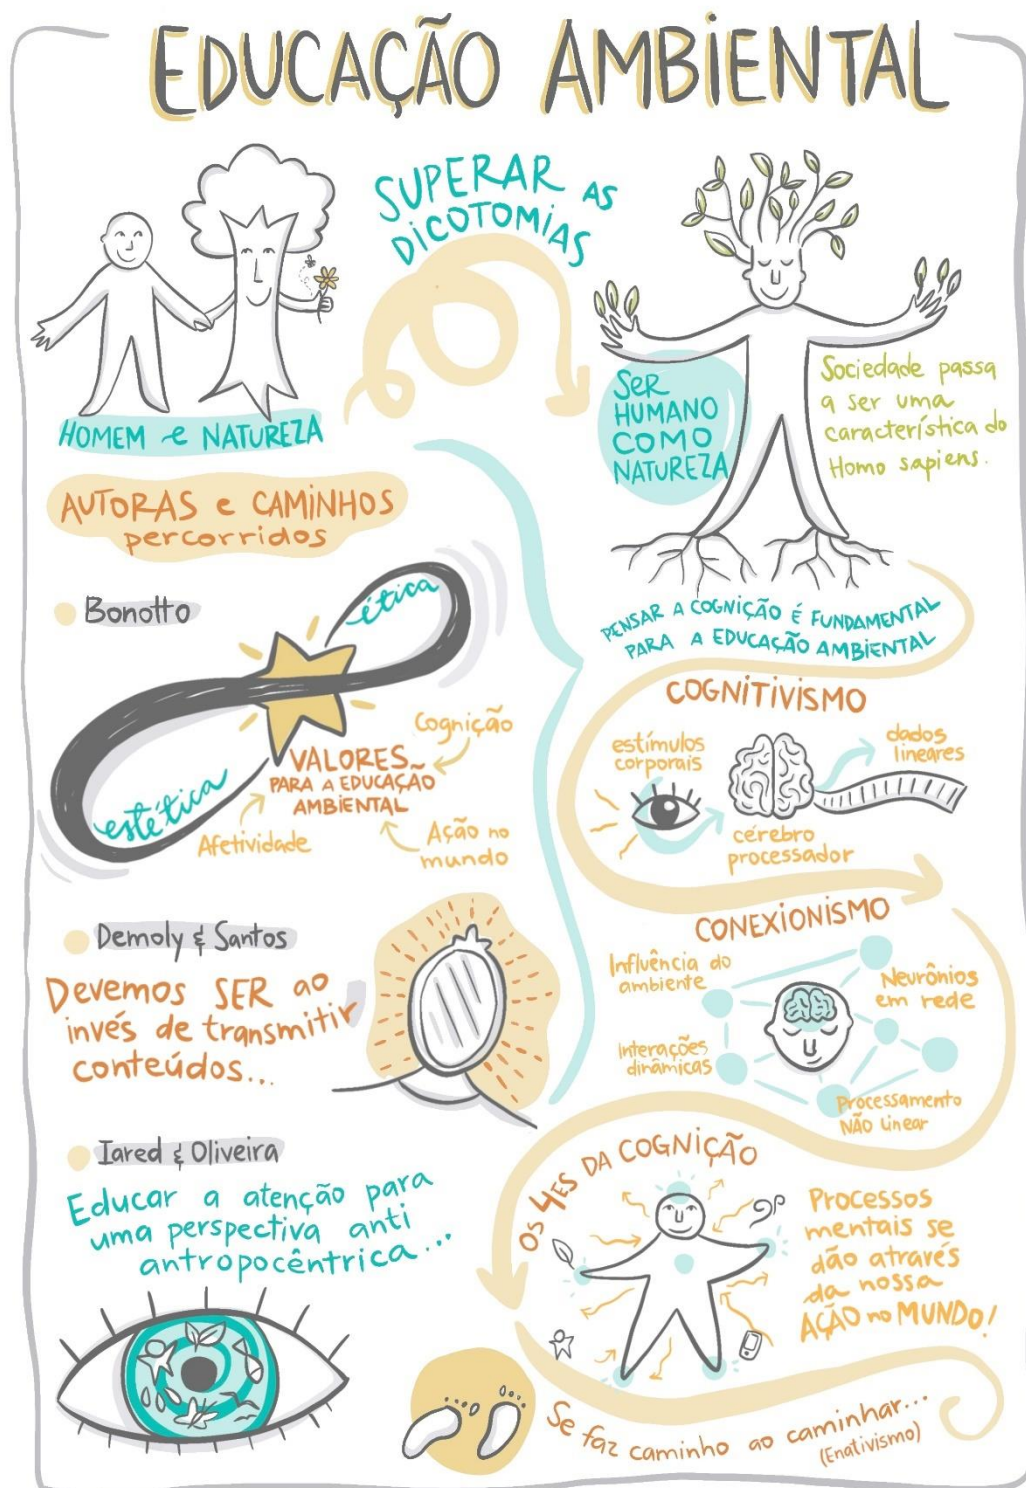 EDUCAÇÃO AMBIENTAL
SUPERAR AS
DICOTOMIAS
HOMEM e NATUREZA
SER
HUMANO
COMO
NATUREZA
Sociedade passa
a ser uma
característica do
Homo sapiens.
AUTORAS e CAMINHOS
percorridos
Bonotto
ética
estética
VALORES
PARA A EDUCAÇÃO
AMBIENTAL
Cognição
Afetividade
Ação no
mundo
Demoly & Santos
Devemos SER ao
invés de transmitir
conteúdos...
Iared & Oliveira
Educar a atenção para
uma perspectiva anti
antropocêntrica...
PENSAR A COGNIÇÃO É FUNDAMENTAL
PARA A EDUCAÇÃO AMBIENTAL
COGNITIVISMO
estímulos
corporais
dados
lineares
cérebro
processador
CONEXIONISMO
Influência do
ambiente
Neurônios
em rede
Interações
dinâmicas
Processamento
NÃO Linear
OS 4ES DA COGNIÇÃO
Processos
mentais se
dão através
da nossa
AÇÃO no MUNDO!
Se faz caminho ao caminhar...
(Enativismo)